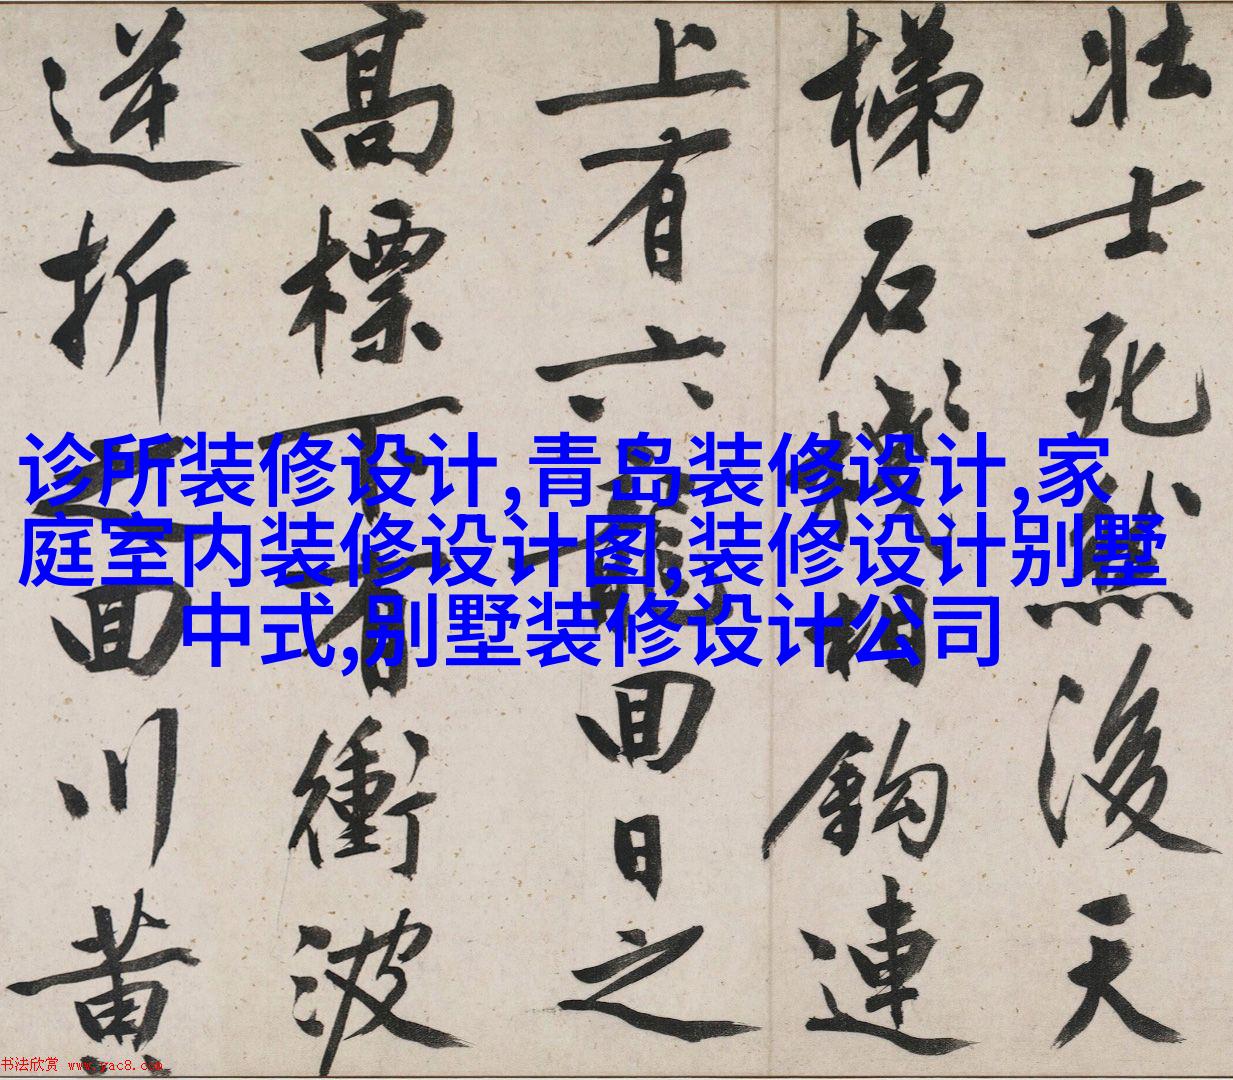 壮士死然後天
梯石棧相鈎連
上有六龍回日之
高標下有衝波
逆折之回川黄
诊所装修设计,青岛装修设计,家
庭室内装修设计图,装修设计别墅
中式,别墅装修设计公司
书法欣赏 www.yac8.com